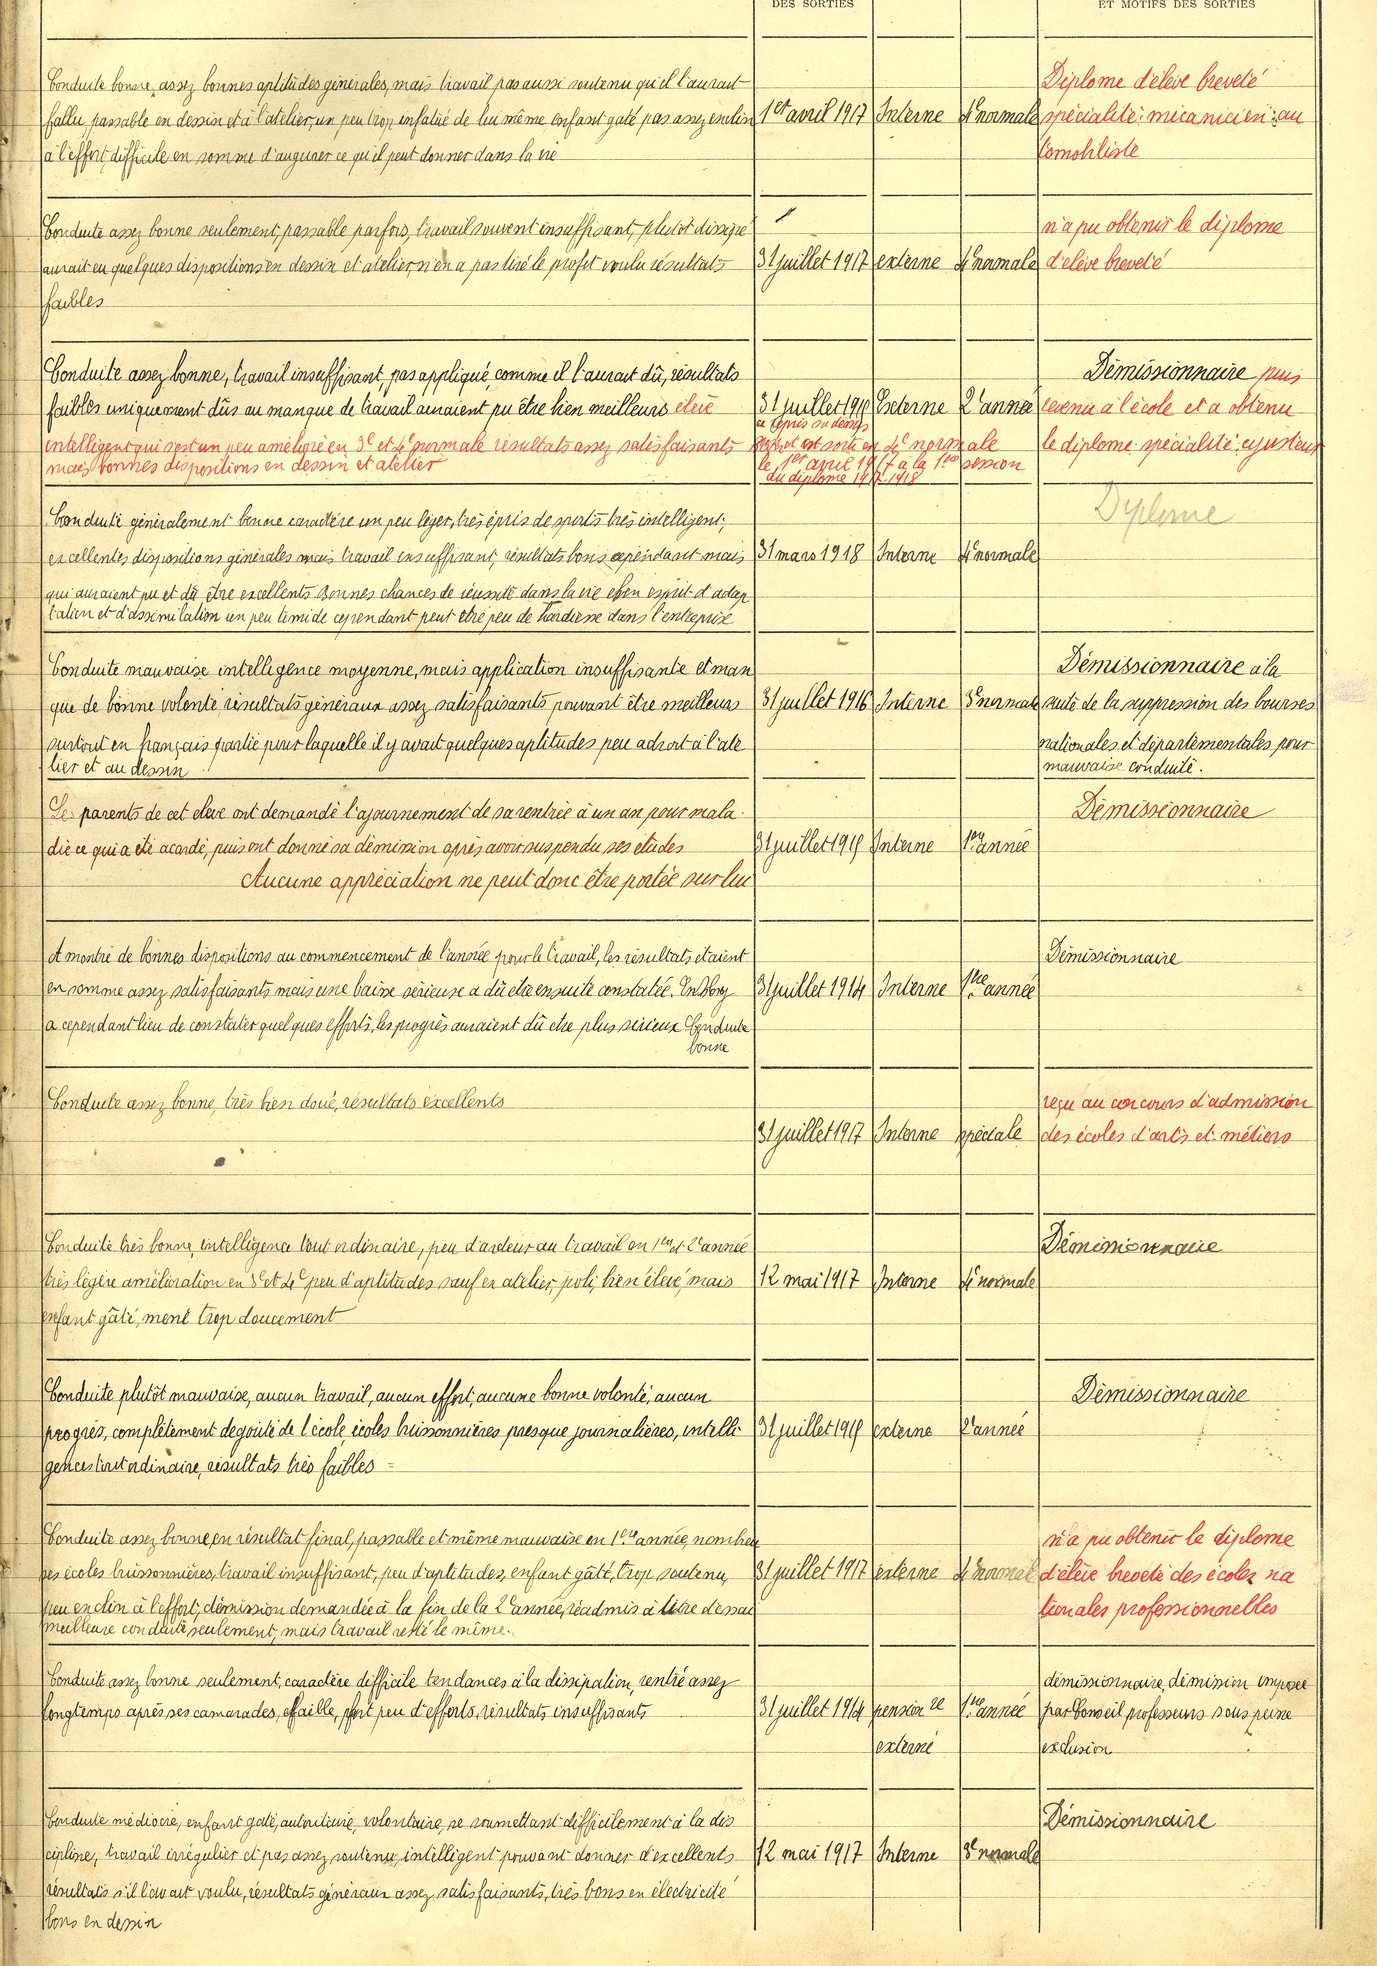 DES SORTIES
ET MOTIFS DES SORTIES
Conduite bonne, assez bonnes aptitudes générales, mais travail pas aussi soutenu qu'il l'aurait
fallu passable en dessin et à l'atelier, un peu trop infatué de lui même enfant gaté pas assez enclin
à l'effort, difficile en somme d'augurer ce qu'il peut donner dans la vie
1er avril 1917 Interne 4e normale
Diplome d'élève breveté
spécialité: mécanicien au
tomobiliste
Conduite assez bonne seulement, passable parfois, travail souvent insuffisant, plutot dissipé
aurait eu quelques dispositions en dessin et atelier n'en a pas tiré le profit voulu résultats
faibles
31 juillet 1917 externe 4e normale
n'a pu obtenir le diplome
d'élève breveté
Conduite assez bonne, travail insuffisant, pas appliqué, comme il l'aurait dû, résultats
faibles uniquement dûs au manque de travail auraient pu être bien meilleurs élève
intelligent qui s'est un peu amélioré en 3e et 4e normale résultats assez satisfaisants
mais bonnes dispositions en dessin et atelier
31 juillet 1915 Externe 2e année
et est sorti en 4e normale
le 1er avril 1917 à la 1ère session
du diplome 1917-1918
Démissionnaire puis
revenu à l'école et a obtenu
le diplome spécialité: ajusteur
Conduite généralement bonne caractère un peu léger, très épris de sports très intelligent,
excellentes dispositions générales mais travail insuffisant, résultats bons cependant mais
qui auraient pu et dû être excellents Bonnes chances de réussite dans la vie bon esprit d'adap
tation et d'assimilation un peu timide cependant peut être peu de hardiesse dans l'entreprise
31 mars 1918 Interne 4e normale
Diplome
Conduite mauvaise intelligence moyenne, mais application insuffisante et man
que de bonne volonté, résultats généraux assez satisfaisants pouvant être meilleurs
surtout en français partie pour laquelle il y avait quelques aptitudes peu adroit à l'ate
lier et au dessin
31 juillet 1916 Interne 3e normale
Démissionnaire à la
suite de la suppression des bourses
nationales et départementales pour
mauvaise conduite.
Les parents de cet élève ont demandé l'ajournement de sa rentrée à un an pour mala
die ce qui a été acordé, puis ont donné sa démission après avoir suspendu ses études
Aucune appréciation ne peut donc être portée sur lui
31 juillet 1915 Interne 1ère année
Démissionnaire
A montré de bonnes dispositions au commencement de l'année pour le travail, les résultats étaient
en somme assez satisfaisants mais une baisse sérieuse a dû etre ensuite constatée. Il y
a cependant lieu de constater quelques efforts, les progrès auraient dû etre plus sérieux Conduite
bonne
31 juillet 1914 Interne 1ère année
Démissionnaire
Conduite assez bonne, très bien doué, résultats excellents
31 juillet 1917 Interne spéciale
reçu au concours d'admission
des écoles d'arts et métiers
Conduite très bonne, intelligence tout ordinaire, peu d'ardeur au travail en 1ère et 2e année
très légère amélioration en 3e et 4e peu d'aptitudes sauf en atelier, poli, bien élevé, mais
enfant gâté, mené trop doucement
12 mai 1917 Interne 4e normale
Démissionnaire
Conduite plutôt mauvaise, aucun travail, aucun effort, aucune bonne volonté, aucun
progrès, complètement degouté de l'école, écoles buissonnières presque journalières, intelli
gences tout ordinaire, résultats très faibles =
31 juillet 1915 externe 2e année
Démissionnaire
Conduite assez bonne en résultat final, passable et même mauvaise en 1ère année, nombreu
ses écoles buissonnières, travail insuffisant, peu d'aptitudes, enfant gâté, trop soutenu,
peu enclin à l'effort, démission demandée à la fin de la 2e année, réadmis à titre d'essai
meilleure conduite seulement, mais travail resté le même.
31 juillet 1917 externe 4e normale
n'a pu obtenir le diplome
d'élève breveté des écoles na
tionales professionnelles
Conduite assez bonne seulement, caractère difficile tendances à la dissipation, rentré assez
longtemps après ses camarades, faible, fort peu d'efforts, résultats insuffisants
31 juillet 1914 pension re 1ère année
externé
démissionnaire, démission imposée
par Conseil professeurs sous peine
exclusion
Conduite médiocre, enfant gaté, autoritaire, volontaire, se soumettant difficilement à la dis
cipline, travail irrégulier et pas assez soutenu, intelligent pouvant donner d'excellents
résultats s'il l'avait voulu, résultats généraux assez satisfaisants, très bons en électricité
bons en dessin
12 mai 1917 Interne 3e normale
Démissionnaire